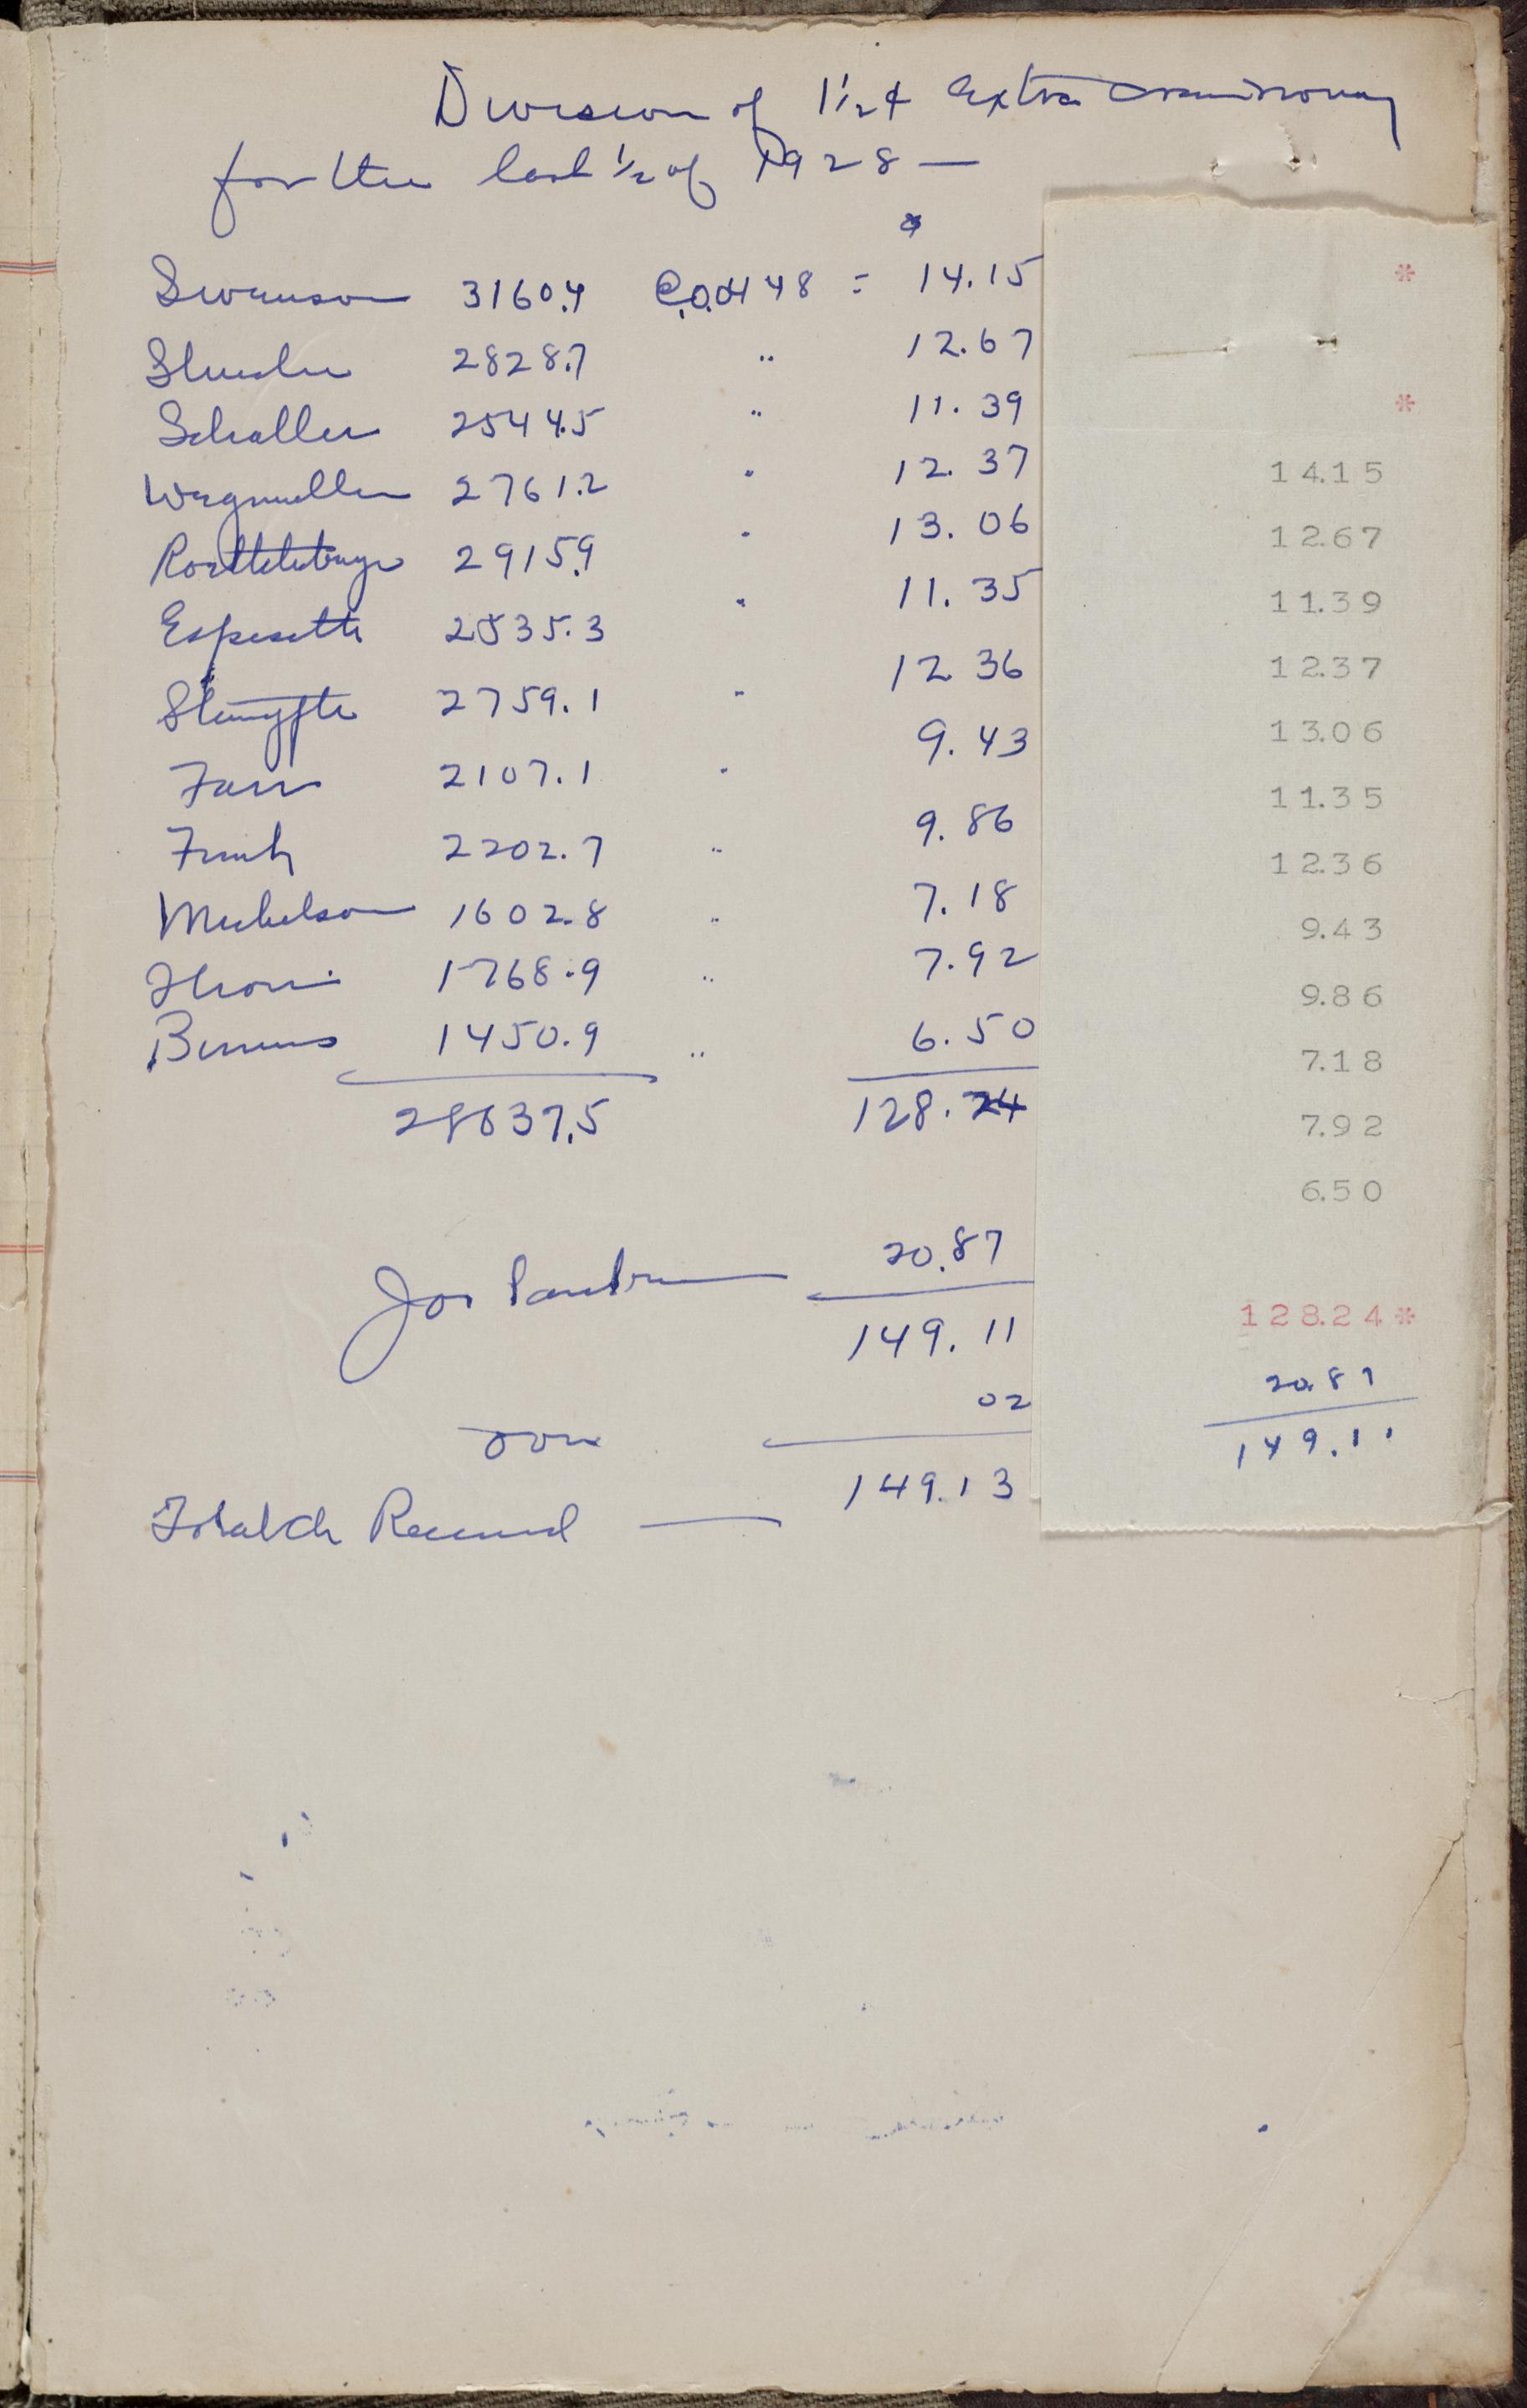 Division of 1½¢ Extra
for the last ½ of 1928 —
Swanson 3160.4 @ .00448 = 14.15
2828.7 " 12.67
Schaller 2544.5 " 11.39
Wegmuller 2761.2 " 12.37
2915.9 " 13.06
2535.3 " 11.35
2759.1 " 12 36
Farr 2107.1 " 9.43
2202.7 " 9.86
Michelson 1602.8 " 7.18
1768.9 " 7.92
1450.9 " 6.50
28637.5 128.24
20.87
149.11
02
149.13
Total Ch Received —
*
*
14.15
12.67
11.39
12.37
13.06
11.35
12.36
9.43
9.86
7.18
7.92
6.50
128.24*
20.87
149.11